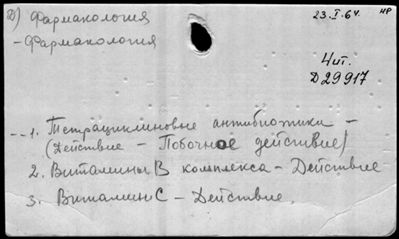 д) Фармакология
23.I.64. НР
- Фармакология
Чит.
D29917
1. Тетрациклиновые антибиотики -
(Действие - Побочное действие)
2. Витамины В комплекса - Действие
3. Витамин С - Действие.